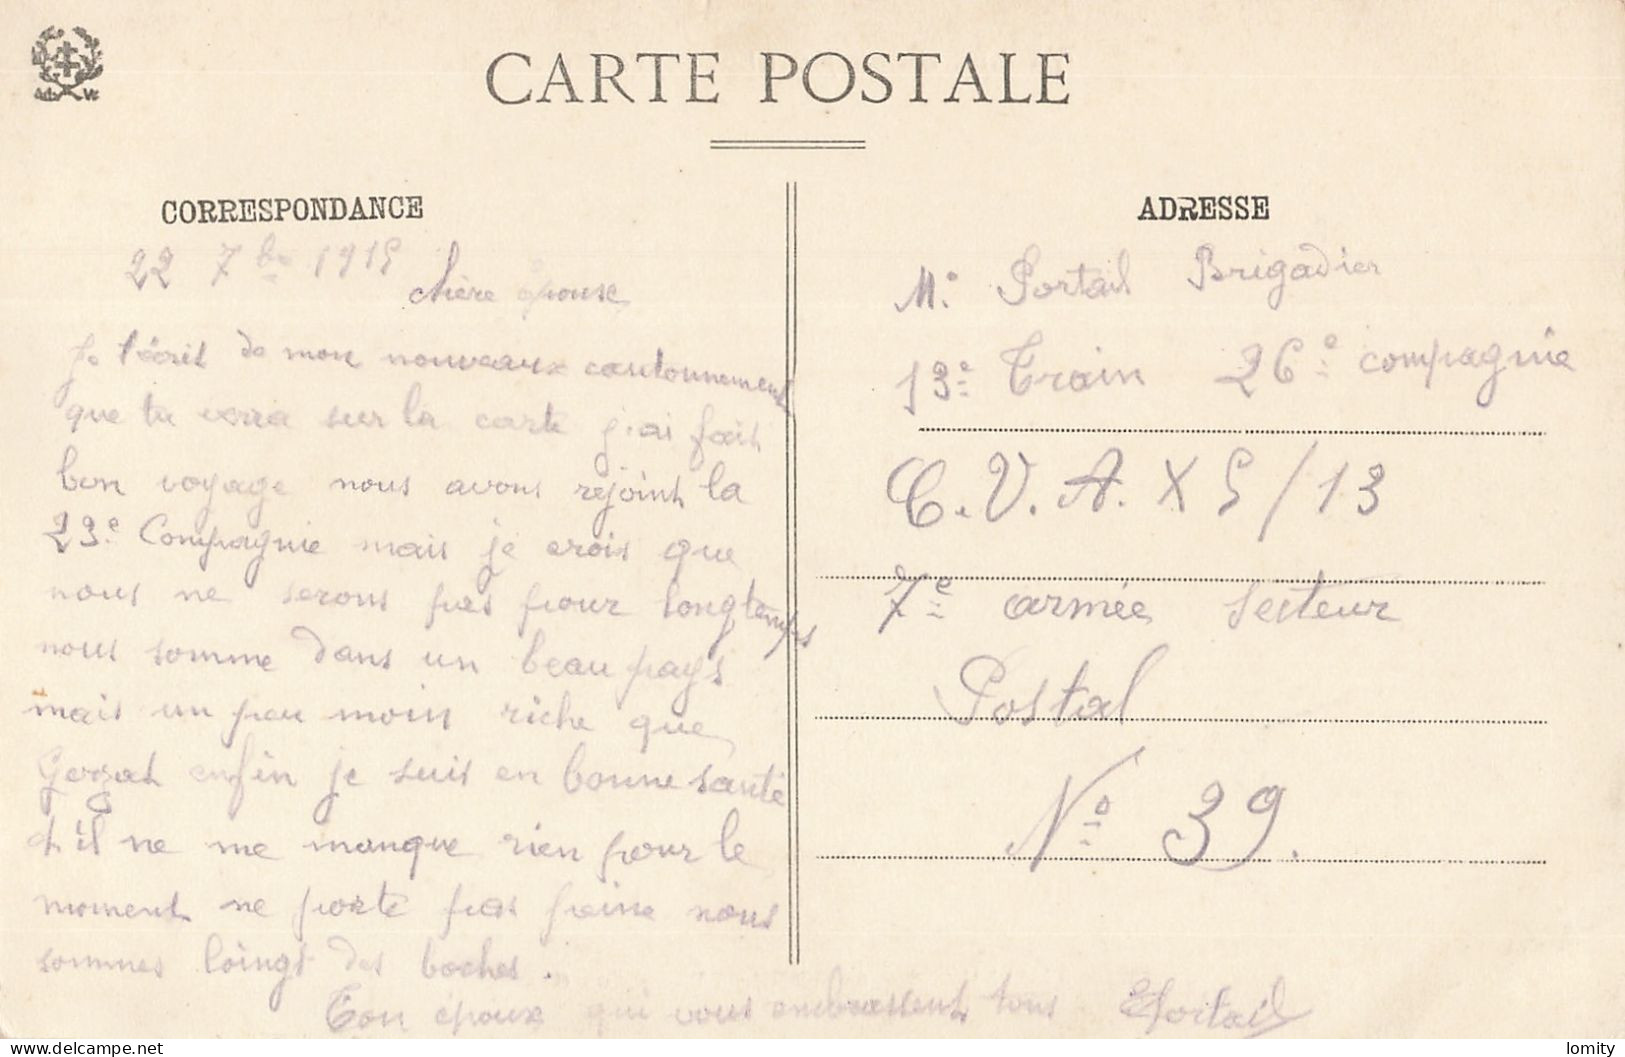 CARTE POSTALE
CORRESPONDANCE
22 7bre 1915
chère épouse
je t'écris de mon nouveaux cantonnement
que tu verra sur la carte j'ai fait
bon voyage nous avons rejoint la
23e Compagnie mais je crois que
nous ne serons pas pour longtemps
nous somme dans un beau pays
mais un peu moin riche que
enfin je suis en bonne santé
et il ne me manque rien pour le
moment ne porte pas peine nous
sommes loingt des boches.
Ton époux qui vous embrassent tous EPortail
ADRESSE
Mr Portail Brigadier
13e Train 26e compagnie
C.V.A.X 5/13
7e armée Secteur
Postal
No 39.
lomity
delcampe.net